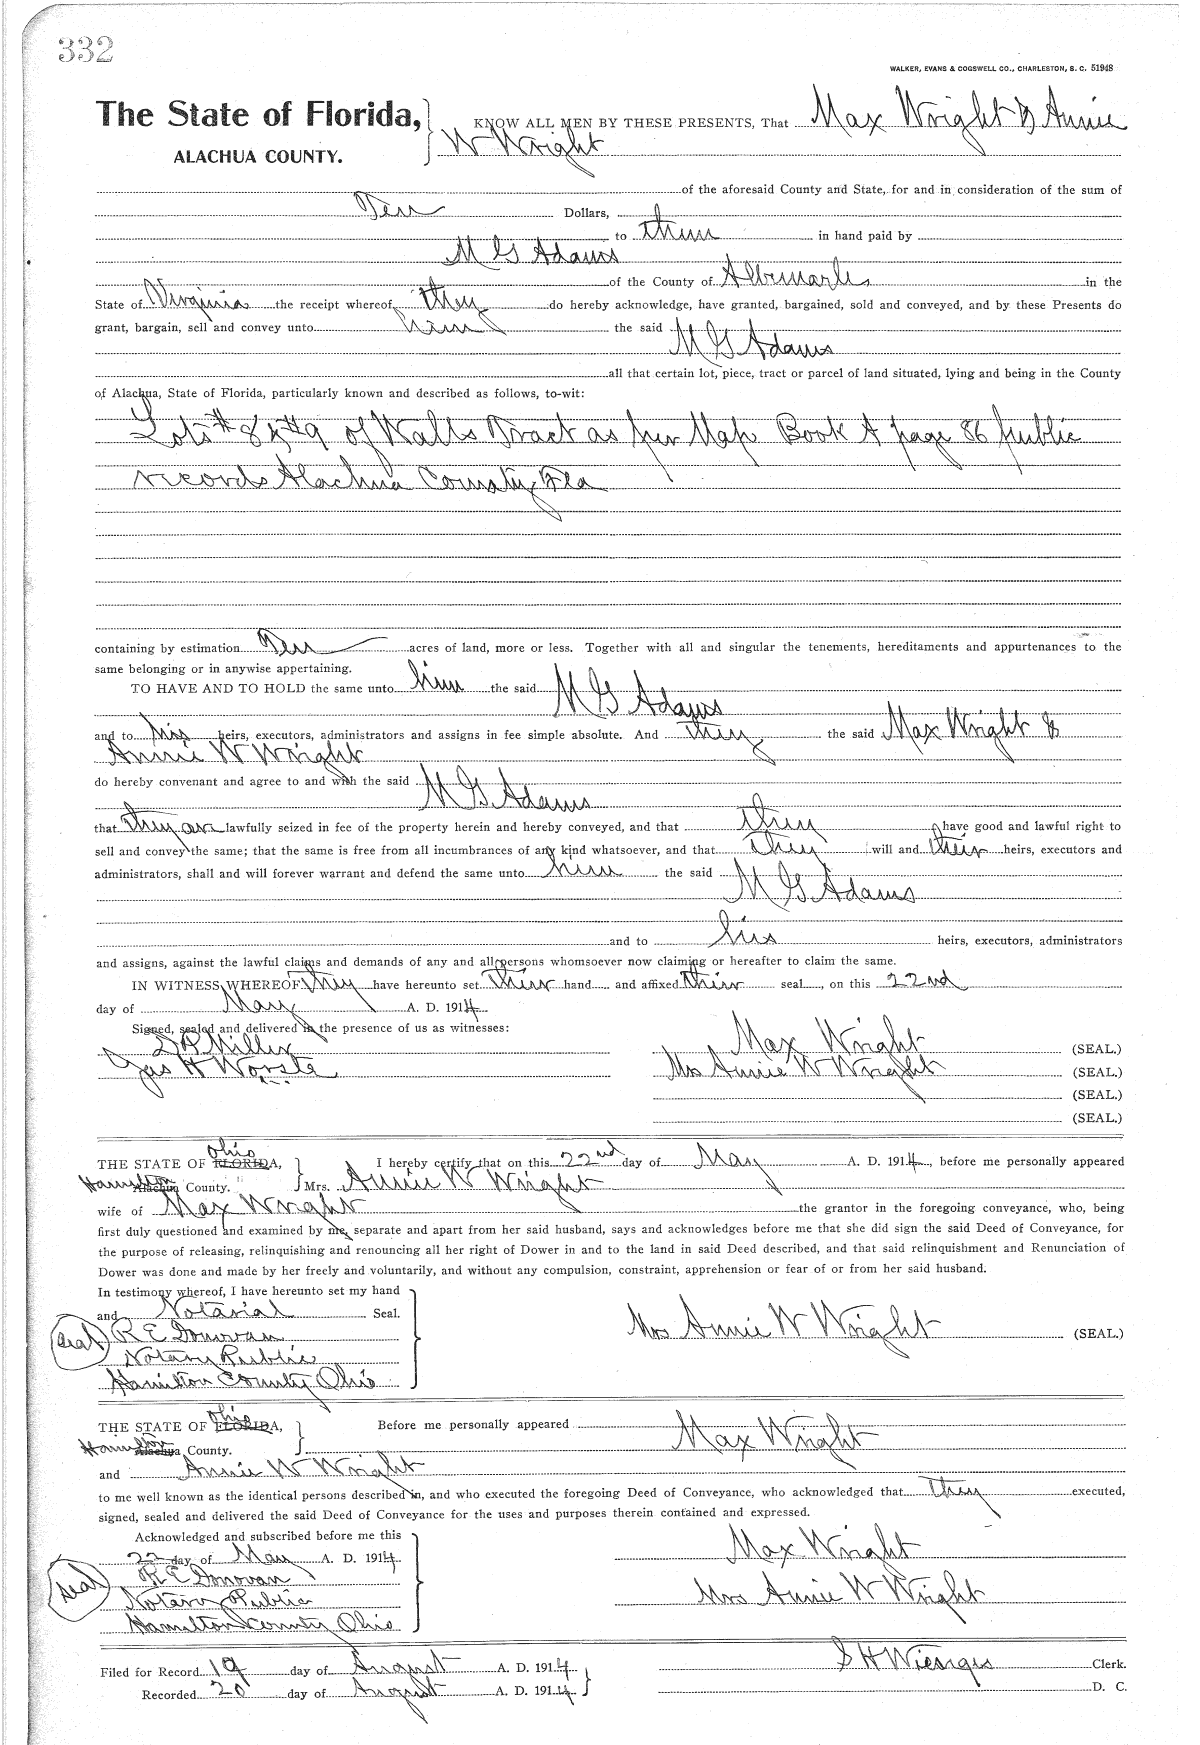 332
WALKER, EVANS & COGSWELL CO., CHARLESTON, S. C. 51948
The State of Florida,
ALACHUA COUNTY.
KNOW ALL MEN BY THESE PRESENTS, That Max Wright & Annie
W Wright
of the aforesaid County and State, for and in consideration of the sum of
Ten Dollars,
to them in hand paid by
M G Adams
of the County of Albemarle in the
State of Virginia the receipt whereof they do hereby acknowledge, have granted, bargained, sold and conveyed, and by these Presents do
grant, bargain, sell and convey unto him the said
M G Adams
all that certain lot, piece, tract or parcel of land situated, lying and being in the County
of Alachua, State of Florida, particularly known and described as follows, to-wit:
Lots # 8 & #9 of Walls Tract as per Map Book A page 86 public
records Alachua County Fla
containing by estimation Ten acres of land, more or less. Together with all and singular the tenements, hereditaments and appurtenances to the
same belonging or in anywise appertaining.
TO HAVE AND TO HOLD the same unto him the said M G Adams
and to his heirs, executors, administrators and assigns in fee simple absolute. And they the said Max Wright &
Annie W Wright
do hereby convenant and agree to and with the said M G Adams
that they are lawfully seized in fee of the property herein and hereby conveyed, and that they have good and lawful right to
sell and convey the same; that the same is free from all incumbrances of any kind whatsoever, and that they will and their heirs, executors and
administrators, shall and will forever warrant and defend the same unto him the said
M G Adams
and to his heirs, executors, administrators
and assigns, against the lawful claims and demands of any and all persons whomsoever now claiming or hereafter to claim the same.
IN WITNESS WHEREOF they have hereunto set their hand and affixed their seal, on this 22nd
day of May A. D. 1914
Signed, sealed and delivered in the presence of us as witnesses:
Miller Max Wright (SEAL.)
Jas H Worste Mrs Annie W Wright (SEAL.)
(SEAL.)
(SEAL.)
Ohio
THE STATE OF FLORIDA, I hereby certify that on this 22nd day of May A. D. 1914, before me personally appeared
Hamilton Alachua County. Mrs. Annie W Wright
wife of Max Wright the grantor in the foregoing conveyance, who, being
first duly questioned and examined by me, separate and apart from her said husband, says and acknowledges before me that she did sign the said Deed of Conveyance, for
the purpose of releasing, relinquishing and renouncing all her right of Dower in and to the land in said Deed described, and that said relinquishment and Renunciation of
Dower was done and made by her freely and voluntarily, and without any compulsion, constraint, apprehension or fear of or from her said husband.
In testimony whereof, I have hereunto set my hand
and Notarial Seal.
Seal R E Donovan Mrs Annie W Wright (SEAL.)
Notary Public
Hamilton County Ohio
Ohio
THE STATE OF FLORIDA, Before me personally appeared
Max Wright
Hamilton Alachua County.
and Annie W Wright
to me well known as the identical persons described in, and who executed the foregoing Deed of Conveyance, who acknowledged that they executed,
signed, sealed and delivered the said Deed of Conveyance for the uses and purposes therein contained and expressed.
Acknowledged and subscribed before me this
22 day of May A. D. 1914 Max Wright
Seal R E Donovan
Notary Public Mrs Annie W Wright
Hamilton County Ohio
Filed for Record 19 day of August A. D. 1914 S H Wienges Clerk.
Recorded 20 day of August A. D. 1914 D. C.